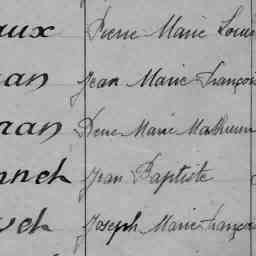 aux Pierre Marie Louis
an Jean Marie François
aan René Marie Mathurin
nnch Jean Baptiste
uch Joseph Marie François